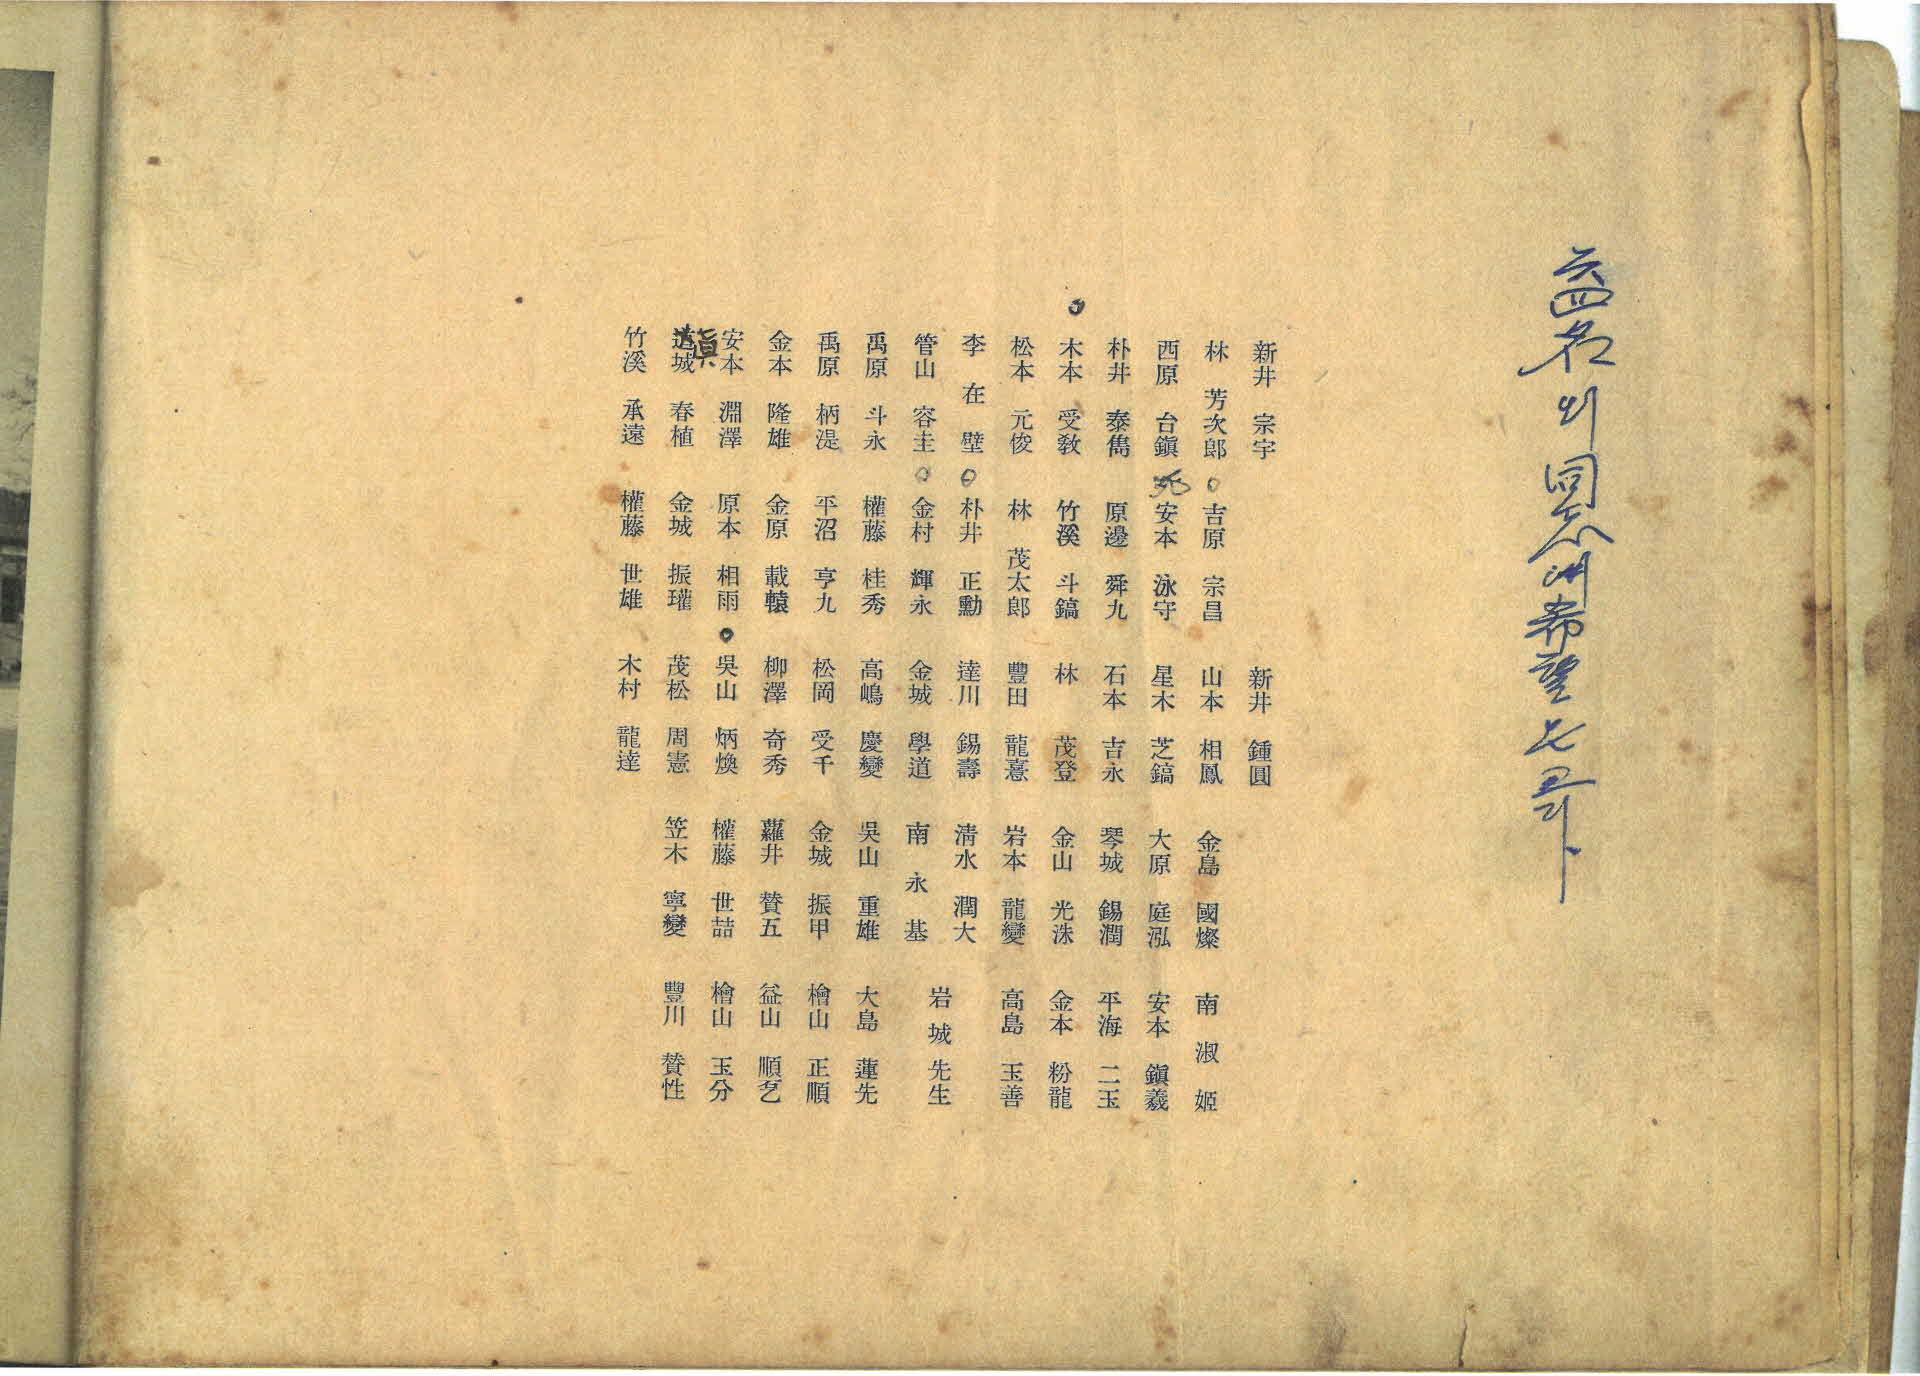 六四名의 同志여 希望은 크다
新井 宗宇 新井 鍾圓
林 芳次郎 ○ 吉原 宗昌 山本 相鳳 金島 國燦 南 淑 姬
西原 台鎭 死 安本 泳守 星木 芝鎬 大原 庭泓 安本 鎭羲
朴井 泰雋 原邊 舜九 石本 吉永 琴城 錫潤 平海 二玉
○ 木本 受教 竹溪 斗鎬 林 茂登 金山 光洙 金本 粉龍
松本 元俊 林 茂太郎 豐田 龍憙 岩本 龍變 高島 玉善
李 在 壁 ○ 朴井 正勳 達川 錫壽 淸水 潤大 岩城先生
管山 容圭 ○ 金村 輝永 金城 學道 南 永 基
禹原 斗永 權藤 桂秀 高嶋 慶變 吳山 重雄 大島 蓮先
禹原 柄湜 平沼 亨九 松岡 受千 金城 振甲 檜山 正順
金本 隆雄 金原 載轅 柳澤 奇秀 蘿井 贊五 益山 順乭
安本 淵澤 原本 相雨 ○ 吳山 炳煥 權藤 世喆 檜山 玉分
眞城 春植 金城 振瓘 茂松 周憲 笠木 寧變 豐川 贊性
竹溪 承遠 權藤 世雄 木村 龍達